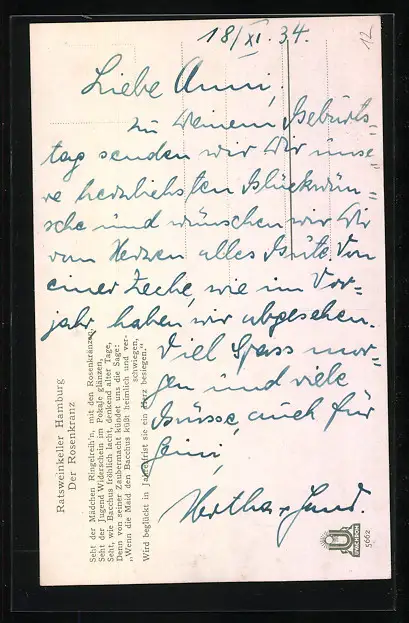 18/XI. 34.
12
Liebe Anni,
zu Deinem Geburts-
tag senden wir Dir unse-
re herzlichsten Glückwün-
sche und wünschen wir Dir
vom Herzen alles Gute. Von
einer Zeche, wie im Vor-
jahr, haben wir abgesehen.
Viel Spass mor-
gen und viele
Grüsse, auch für
Hertha
Ratsweinkeller Hamburg
Der Rosenkranz
Seht der Mädchen Ringelreih'n, mit den Rosenkränzen,
Seht der Jugend Widerschein im Pokale glänzen,
Seht, wie Bacchus fröhlich lacht, denkend alter Tage,
Denn von seiner Zaubermacht kündet uns die Sage:
„Wenn die Maid den Bacchus küßt heimlich und ver-
schwiegen,
Wird beglückt in Jahresfrist sie ein Herz besiegen."
5662